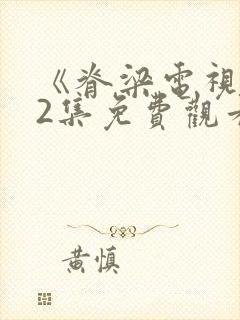 《脊梁電視
2集免費觀看
黃慎